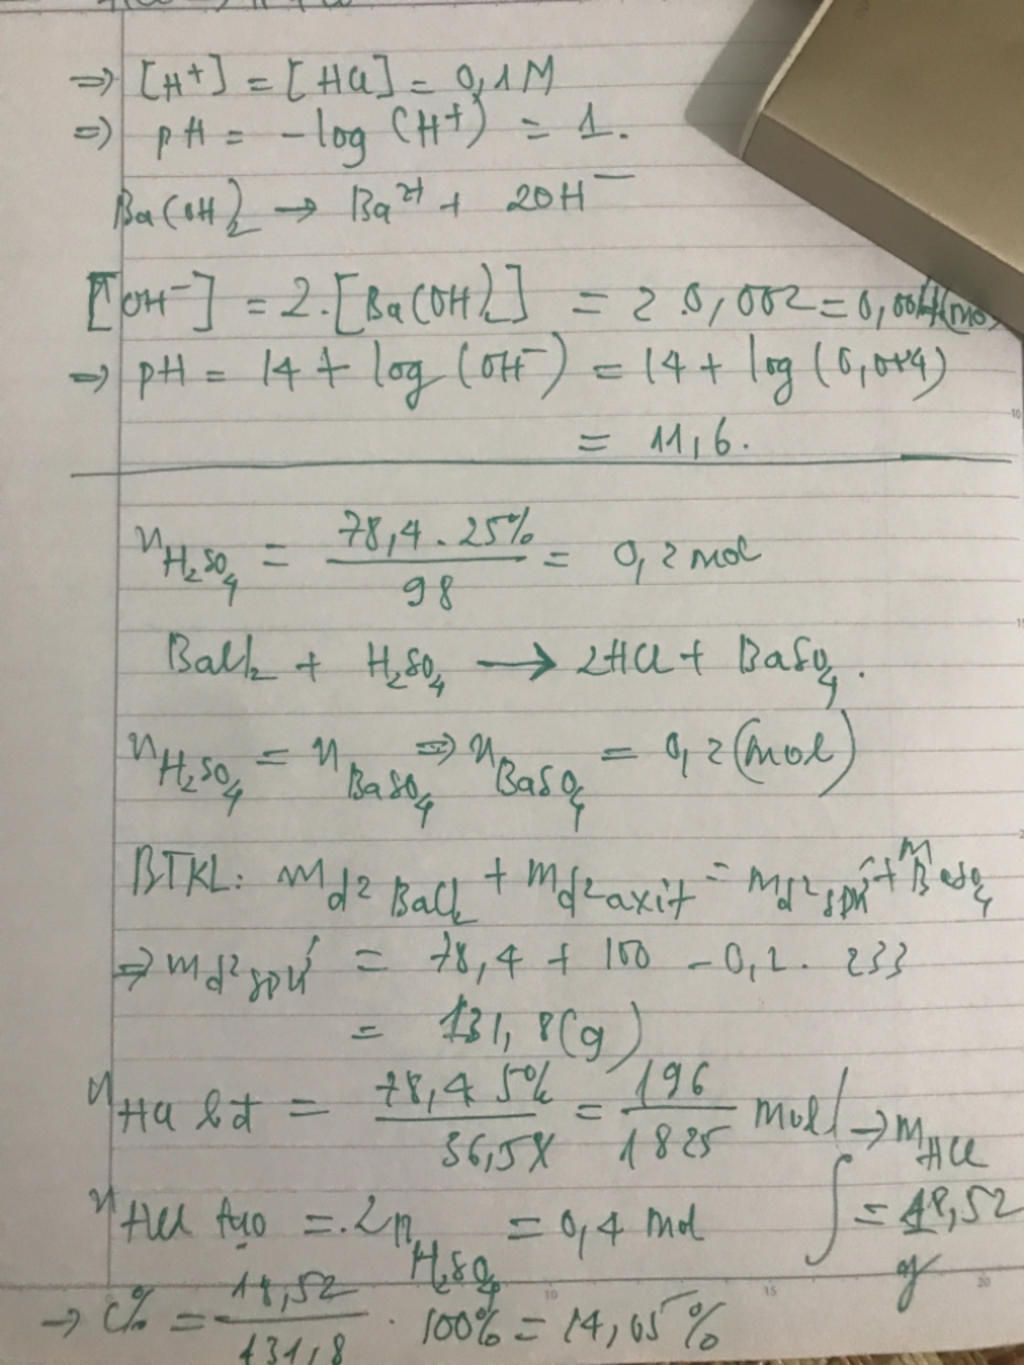 ⇒ [H⁺] = [HCl] = 0,1M
⇒ pH = -log(H⁺) = 1.
Ba(OH)₂ → Ba²⁺ + 2OH⁻
[OH⁻] = 2.[Ba(OH)₂] = 2.0,002 = 0,004(mol)
⇒ pH = 14 + log(OH⁻) = 14 + log(0,004)
= 11,6.
n H₂SO₄ = 78,4 . 25% / 98 = 0,2 mol
BaCl₂ + H₂SO₄ → 2HCl + BaSO₄.
n H₂SO₄ = n BaSO₄ ⇒ n BaSO₄ = 0,2 (mol)
BTKL: m d² BaCl₂ + m d² axit = m d² spứ + m BaSO₄
⇒ m d² spứ = 78,4 + 100 - 0,2. 233
= 131,8(g)
n HCl bđ = 78,4 5% / 36,5 = 196 / 1825 mol → m HCl
n HCl tạo = .2n H₂SO₄ = 0,4 mol = 18,52 g
→ C% = 18,52 / 131,8 . 100% = 14,05%